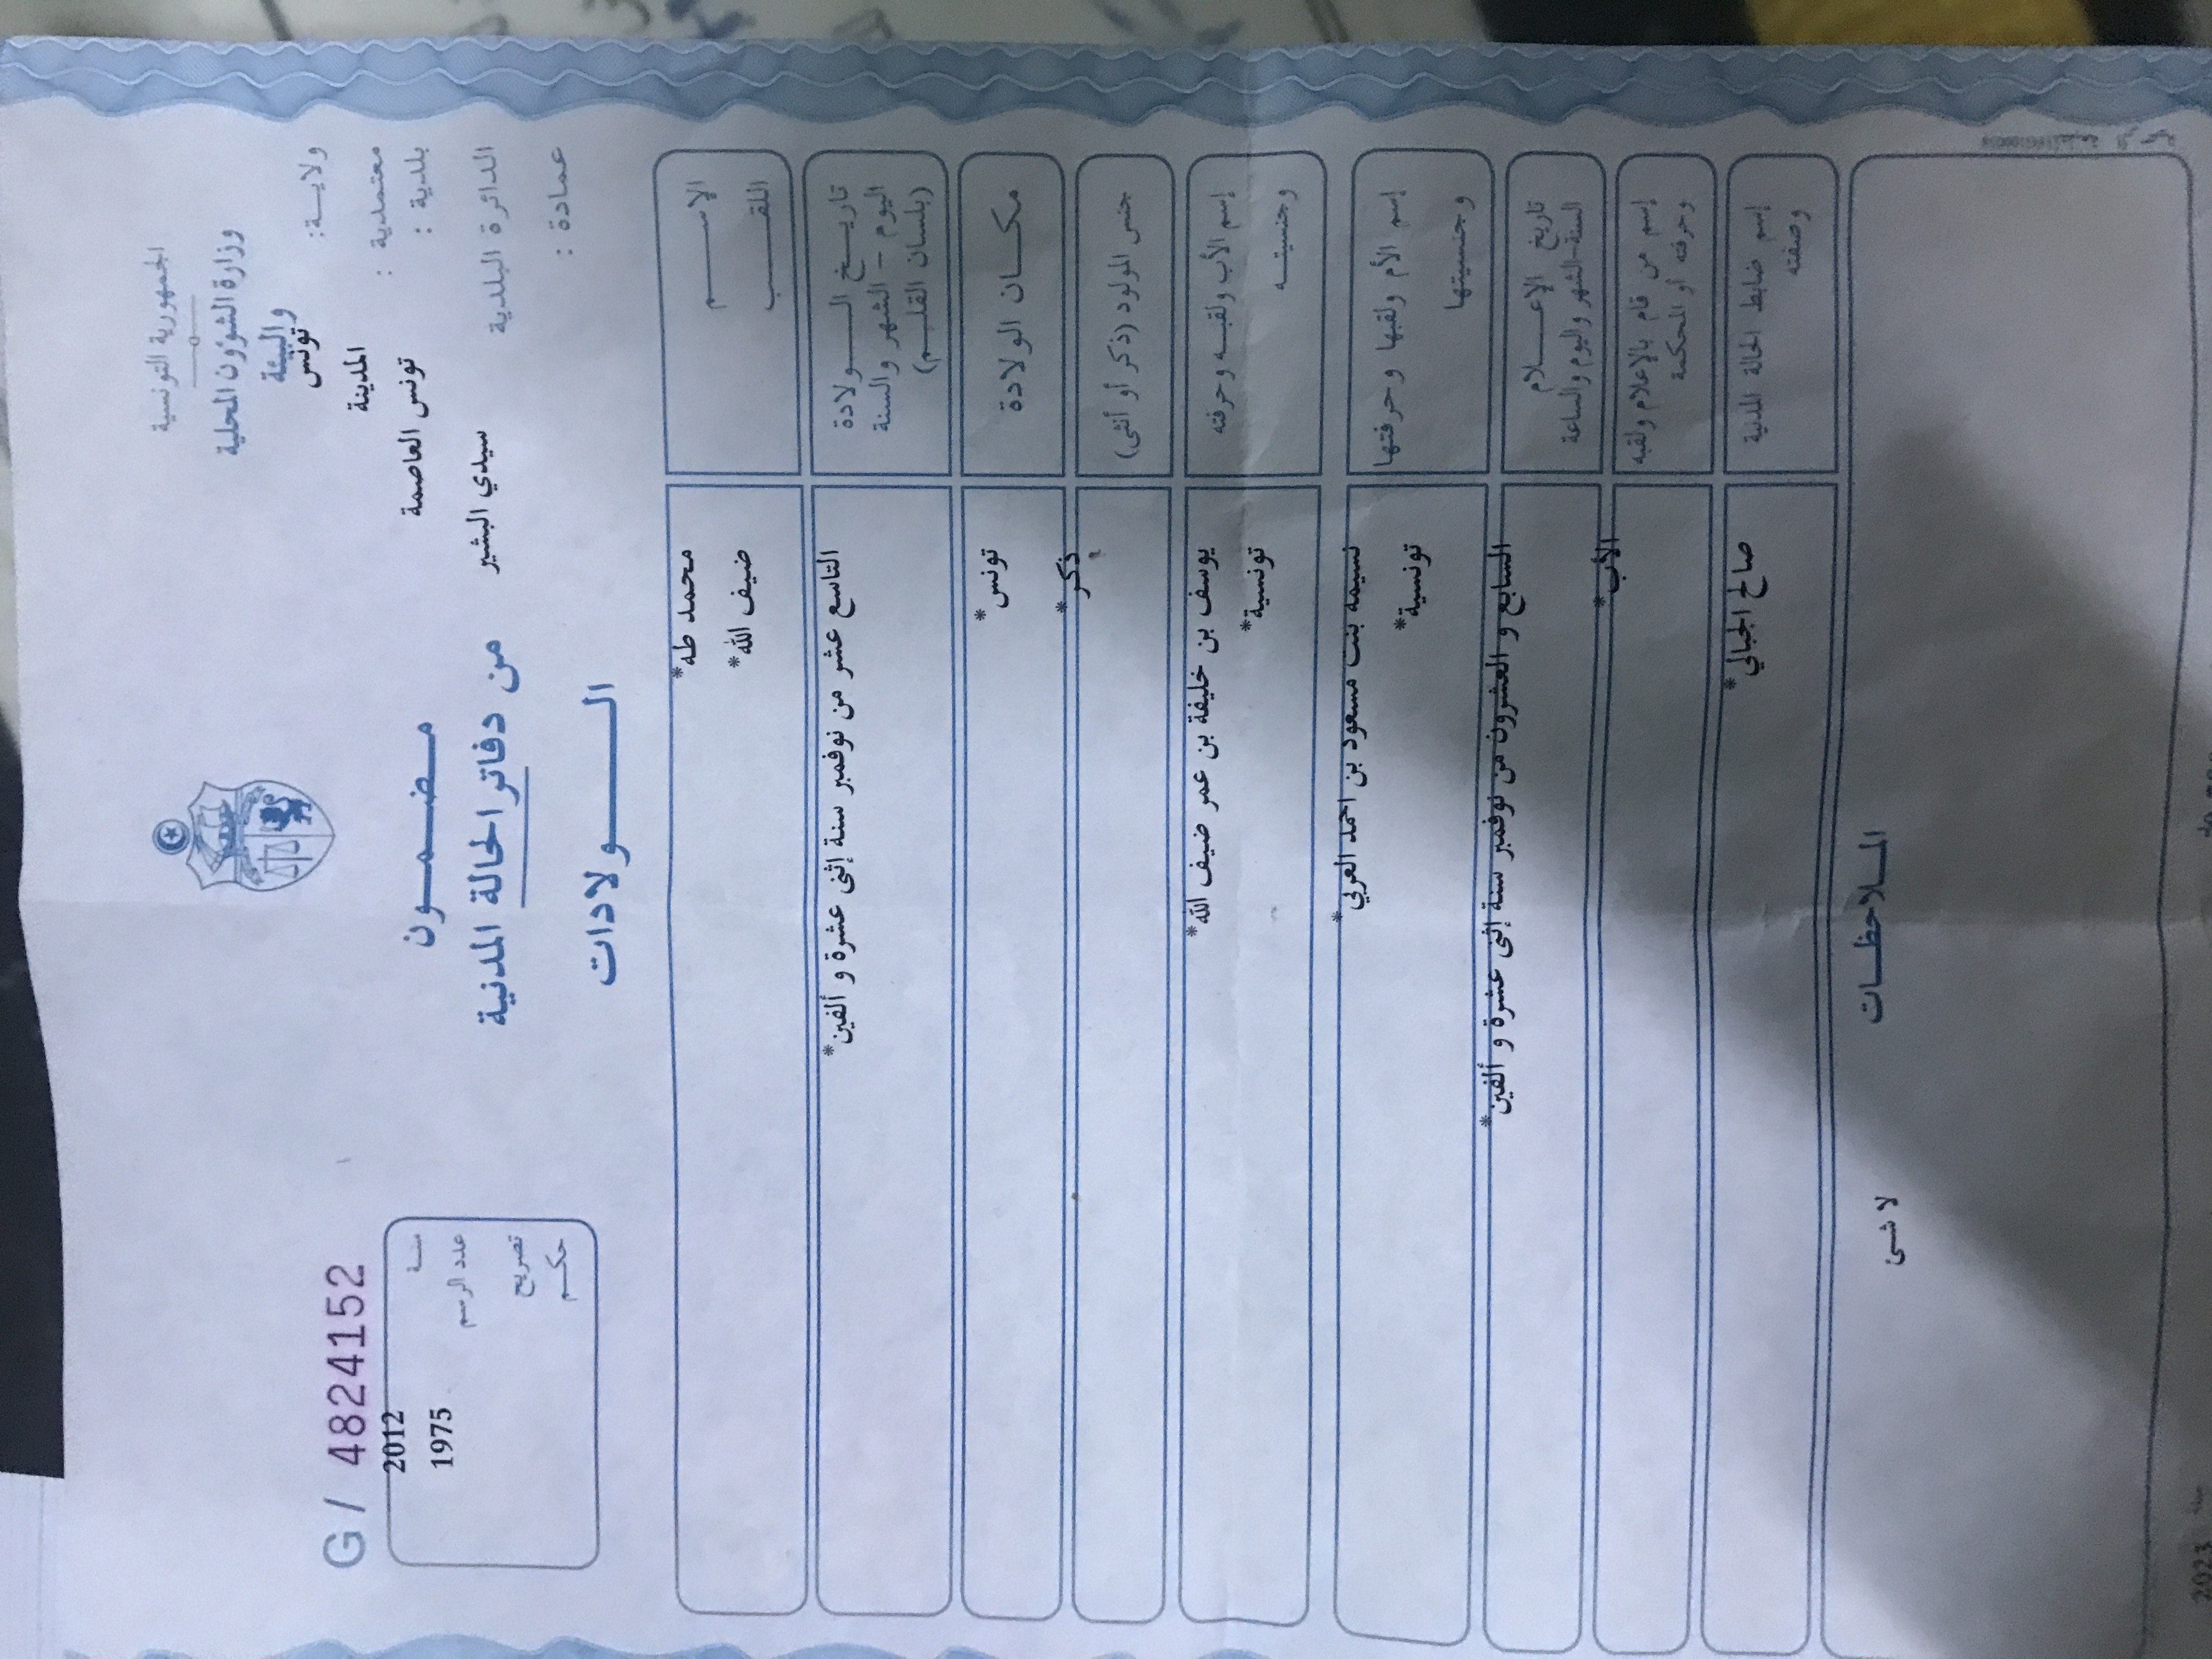 الجمهورية التونسية
وزارة الشؤون المحلية
والبيئة
ولايـة: تونس
معتمدية : المدينة
بلدية : تونس العاصمة
الدائرة البلدية سيدي البشير
عمادة :
G / 4824152
سنـة 2012
عدد الرسم 1975
تصريح
حكـم
مـضـمـون
من دفاتر الحالة المدنية
الـولادات
الإسـم محمد طه*
اللقـب ضيف الله*
تاريـخ الـولادة
اليوم - الشهر والسنة
(بلسان القلـم)
التاسع عشر من نوفمبر سنة إثنى عشرة و ألفين*
مكـان الولادة تونس*
جنس المولود (ذكر أو أنثى) ذكر*
إسم الأب ولقبـه وحرفته يوسف بن خليفة بن عمر ضيف الله*
وجنسيتـه تونسية*
إسم الأم ولقبها وحرفتها نسيمه بنت مسعود بن احمد العربي*
وجنسيتها تونسية*
تاريخ الإعـلام
السنة-الشهر واليوم والساعة
السابع و العشرون من نوفمبر سنة إثنى عشرة و ألفين*
إسم من قام بالإعلام ولقبه
وحرفته أو المحكمة
الأب*
إسم ضابط الحالة المدنية
وصفته
صالح الجبالي*
المـلاحظـات
لا شئ
2023